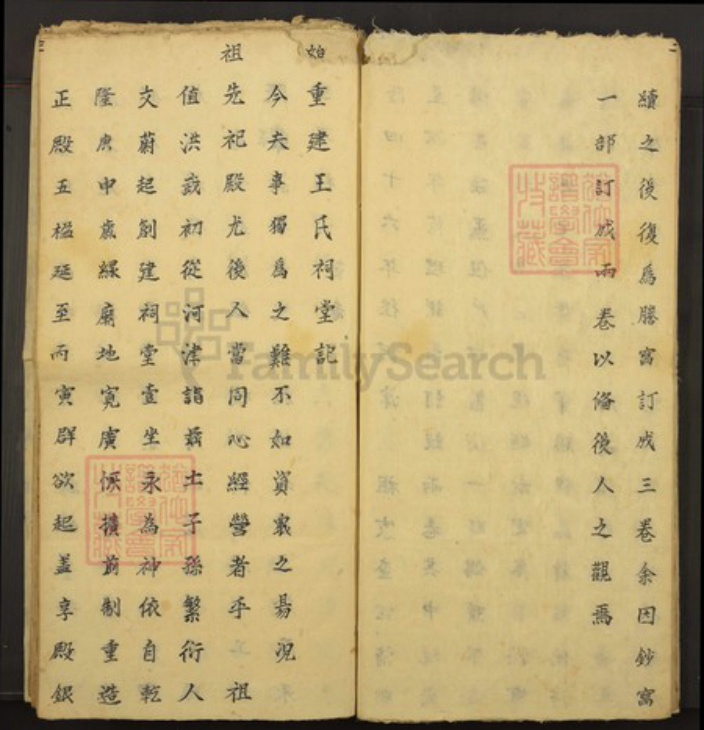 續之後復為謄寫訂成三卷余因鈔寫
一部訂成兩卷以俻後人之觀焉
始重建王氏祠堂記
今夫事獨為之難不如資衆之易況
祖先祀殿尤後人當同心經營者乎 祖
值洪武初從河津詣茲土子孫繁衍人
文蔚起創建祠堂壹坐永為神依自乾
隆庚申歲緣廟地寬廣恢擴前制重造
正殿五楹延至丙寅群欲起盖享殿銀
FamilySearch